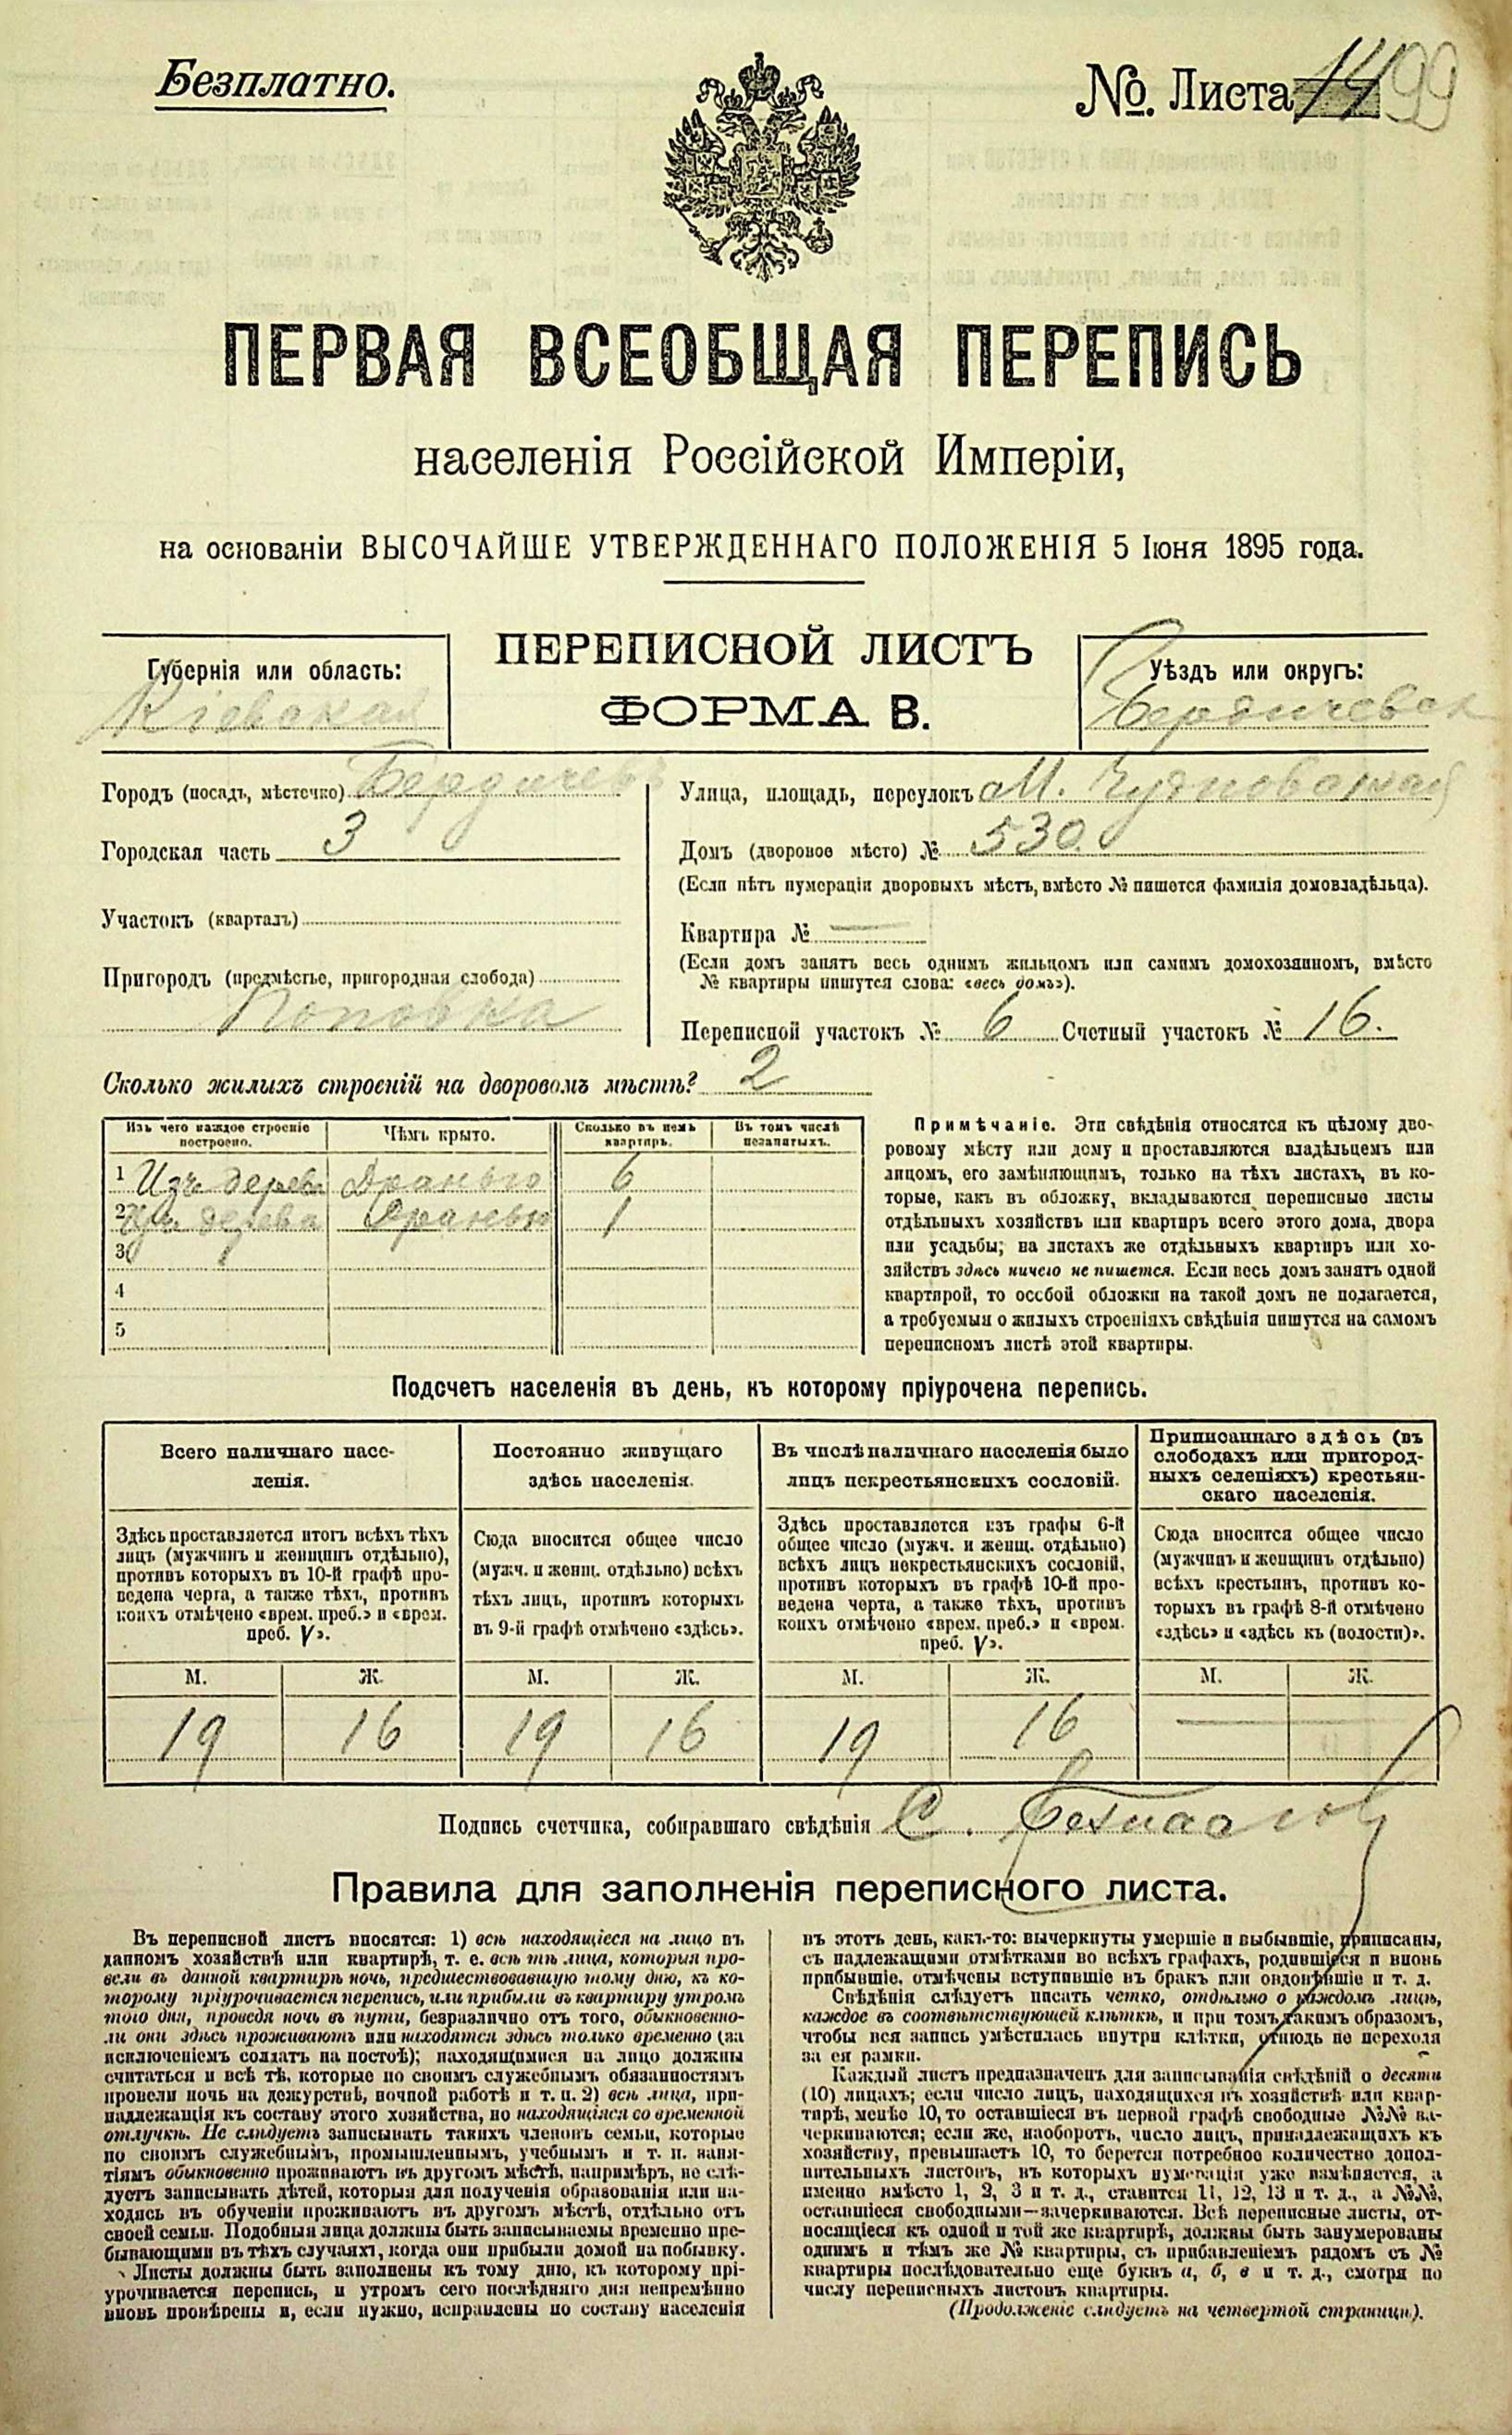 Безплатно.
№. Листа 14 99
ПЕРВАЯ ВСЕОБЩАЯ ПЕРЕПИСЬ
населенія Россійской Имперіи,
на основаніи ВЫСОЧАЙШЕ УТВЕРЖДЕННАГО ПОЛОЖЕНІЯ 5 Іюня 1895 года.
Губернія или область:
Кіевская
ПЕРЕПИСНОЙ ЛИСТЪ
ФОРМА В.
Уѣздъ или округъ:
Бердичевск
Городъ (посадъ, мѣстечко) Бердичевъ
Городская часть 3
Участокъ (кварталъ)
Пригородъ (предмѣстье, пригородная слобода)
Поповка
Улица, площадь, переулокъ М. Чудновская
Домъ (дворовое мѣсто) № 530.
(Если нѣтъ нумераціи дворовыхъ мѣстъ, вмѣсто № пишется фамилія домовладѣльца).
Квартира № —
(Если домъ занятъ весь однимъ жильцомъ или самимъ домохозяиномъ, вмѣсто
№ квартиры пишутся слова: «весь домъ»).
Переписной участокъ № 6 Счетный участокъ № 16.
Сколько жилыхъ строеній на дворовомъ мѣстѣ? 2
Изъ чего каждое строеніе построено. Чѣмъ крыто. Сколько въ немъ квартиръ. Въ томъ числѣ незанятыхъ.
1 Изъ дерева Дранью 6
2 Изъ дерева Дранью 1
3
4
5
Примѣчаніе. Эти свѣдѣнія относятся къ цѣлому дво-
ровому мѣсту или дому и проставляются владѣльцемъ или
лицомъ, его замѣняющимъ, только на тѣхъ листахъ, въ ко-
торые, какъ въ обложку, вкладываются переписные листы
отдѣльныхъ хозяйствъ или квартиръ всего этого дома, двора
или усадьбы; на листахъ же отдѣльныхъ квартиръ или хо-
зяйствъ здѣсь ничего не пишется. Если весь домъ занятъ одной
квартирой, то особой обложки на такой домъ не полагается,
а требуемыя о жилыхъ строеніяхъ свѣдѣнія пишутся на самомъ
переписномъ листѣ этой квартиры.
Подсчетъ населенія въ день, къ которому пріурочена перепись.
Всего наличнаго насе-
ленія.
Здѣсь проставляется итогъ всѣхъ тѣхъ
лицъ (мужчинъ и женщинъ отдѣльно),
противъ которыхъ въ 10-й графѣ про-
ведена черта, а также тѣхъ, противъ
коихъ отмѣчено «врем. преб.» и «врем.
преб. V».
Постоянно живущаго
здѣсь населенія.
Сюда вносится общее число
(мужч. и женщ. отдѣльно) всѣхъ
тѣхъ лицъ, противъ которыхъ
въ 9-й графѣ отмѣчено «здѣсь».
Въ числѣ наличнаго населенія было
лицъ некрестьянскихъ сословій.
Здѣсь проставляется изъ графы 6-й
общее число (мужч. и женщ. отдѣльно)
всѣхъ лицъ некрестьянскихъ сословій,
противъ которыхъ въ графѣ 10-й про-
ведена черта, а также тѣхъ, противъ
коихъ отмѣчено «врем. преб.» и «врем.
преб. V».
Приписаннаго здѣсь (въ
слободахъ или пригород-
ныхъ селеніяхъ) крестьян-
скаго населенія.
Сюда вносится общее число
(мужчинъ и женщинъ отдѣльно)
всѣхъ крестьянъ, противъ ко-
торыхъ въ графѣ 8-й отмѣчено
«здѣсь» и «здѣсь къ (волости)».
М. Ж. М. Ж. М. Ж. М. Ж.
19 16 19 16 19 16 —
Подпись счетчика, собиравшаго свѣдѣнія С.
Правила для заполненія переписного листа.
Въ переписной листъ вносятся: 1) всѣ находящіеся на лицо въ
данномъ хозяйствѣ или квартирѣ, т. е. всѣ тѣ лица, которыя про-
вели въ данной квартирѣ ночь, предшествовавшую тому дню, къ ко-
торому пріурочивается перепись, или прибыли въ квартиру утромъ
того дня, проведя ночь въ пути, безразлично отъ того, обыкновенно-
ли они здѣсь проживаютъ или находятся здѣсь только временно (за
исключеніемъ солдатъ на постоѣ); находящимися на лицо должны
считаться и всѣ тѣ, которые по своимъ служебнымъ обязанностямъ
провели ночь на дежурствѣ, ночной работѣ и т. п. 2) всѣ лица, при-
надлежащія къ составу этого хозяйства, но находящіяся во временной
отлучкѣ. Не слѣдуетъ записывать такихъ членовъ семьи, которые
по своимъ служебнымъ, промышленнымъ, учебнымъ и т. п. заня-
тіямъ обыкновенно проживаютъ въ другомъ мѣстѣ, напримѣръ, не слѣ-
дуетъ записывать дѣтей, которыя для полученія образованія или на-
ходясь въ обученіи проживаютъ въ другомъ мѣстѣ, отдѣльно отъ
своей семьи. Подобныя лица должны быть записываемы временно пре-
бывающими въ тѣхъ случаяхъ, когда они прибыли домой на побывку.
Листы должны быть заполнены къ тому дню, къ которому прі-
урочивается перепись, и утромъ сего послѣдняго дня непремѣнно
вновь провѣрены и, если нужно, исправлены по составу населенія
въ этотъ день, какъ-то: вычеркнуты умершіе и выбывшіе, приписаны,
съ надлежащими отмѣтками во всѣхъ графахъ, родившіеся и вновь
прибывшіе, отмѣчены вступившіе въ бракъ или овдовѣвшіе и т. д.
Свѣдѣнія слѣдуетъ писать четко, отдѣльно о каждомъ лицѣ,
каждое въ соотвѣтствующей клѣткѣ, и при томъ такимъ образомъ,
чтобы вся запись умѣстилась внутри клѣтки, отнюдь не переходя
за ея рамки.
Каждый листъ предназначенъ для записыванія свѣдѣній о десяти
(10) лицахъ; если число лицъ, находящихся въ хозяйствѣ или квар-
тирѣ, менѣе 10, то оставшіеся въ первой графѣ свободные №№ за-
черкиваются; если же, наоборотъ, число лицъ, принадлежащихъ къ
хозяйству, превышаетъ 10, то берется потребное количество допол-
нительныхъ листовъ, въ которыхъ нумерація уже измѣняется, а
именно вмѣсто 1, 2, 3 и т. д., ставится 11, 12, 13 и т. д., а №№,
оставшіеся свободными—зачеркиваются. Всѣ переписные листы, от-
носящіеся къ одной и той же квартирѣ, должны быть занумерованы
однимъ и тѣмъ же № квартиры, съ прибавленіемъ рядомъ съ №
квартиры послѣдовательно еще буквъ а, б, в и т. д., смотря по
числу переписныхъ листовъ квартиры.
(Продолженіе слѣдуетъ на четвертой страницѣ).